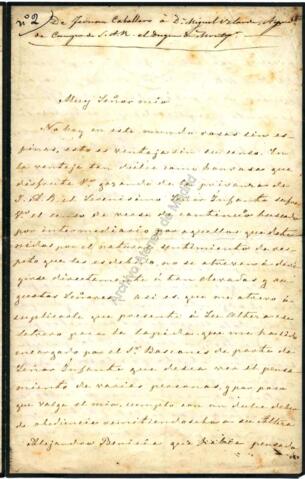 nº 2
De Fernan Caballero à Dn Miguel Velarde,
de Campo de S.A.R. el Duque de
Muy Señor mio
No hay en este mundo rosas sin es-
pinas, esto es ventajas sin su censo. En
la ventaja tan dulce como honrosa que
disfruta V. gozando de la privanza de
S.A.R. el Serenisimo Señor Infante sufre
V. el censo de verse de continuo buscado
por intermediario por aquellos que dete-
nidos por el natural sentimiento de res-
peto que les es debido, no se atreven à diri-
girse directamente á tan elevadas y au-
gustas Señores. Asi es que me atrevo à
suplicarle que presente à Su Alteza el
letrero para la lapida, que me ha sido
encargado por el Sr. Bascones de parte del
Señor Infante que desea vea el pensa-
miento de varias personas, y por poco
que valga el mio, cumplo con un dulce deber
de obediencia remitiendoselo a su Alteza
Alejandro Benisia que habia pensado
Archivo de Madrid